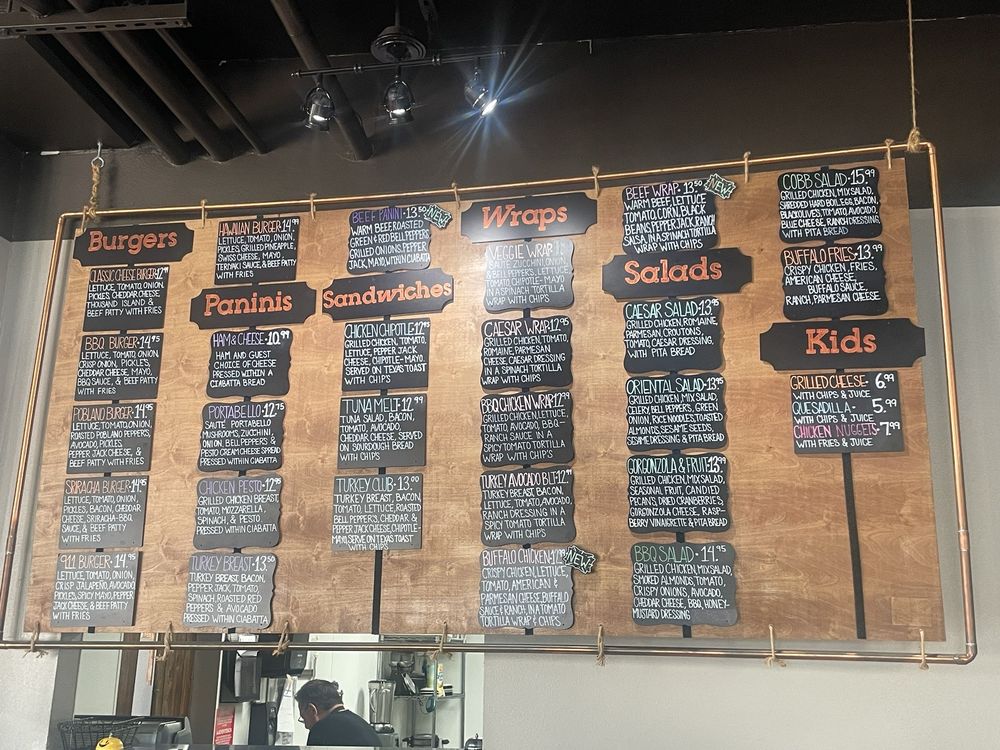 Burgers
CLASSIC CHEESE BURGER
LETTUCE, TOMATO, ONION,
PICKLES, CHEDDAR CHEESE,
THOUSAND ISLAND &
BEEF PATTY WITH FRIES
BBQ BURGER-14.95
LETTUCE, TOMATO, ONION,
CRISP ONION, PICKLES,
CHEDDAR CHEESE, MAYO,
BBQ SAUCE, & BEEF PATTY
WITH FRIES
POBLANO BURGER-14.95
LETTUCE, TOMATO, ONION,
ROASTED POBLANO PEPPERS,
AVOCADO, PICKLES,
PEPPER JACK CHEESE, &
BEEF PATTY WITH FRIES
SRIRACHA BURGER-14.95
LETTUCE, TOMATO, ONION,
PICKLES, BACON, CHEDDAR
CHEESE, SRIRACHA-BBQ
SAUCE, & BEEF PATTY
WITH FRIES
911 BURGER-14.95
LETTUCE, TOMATO, ONION,
CRISP JALAPEÑO, AVOCADO,
PICKLES, SPICY MAYO, PEPPER
JACK CHEESE, & BEEF PATTY
WITH FRIES
HAWAIIAN BURGER-14.99
LETTUCE, TOMATO, ONION,
PICKLES, GRILLED PINEAPPLE,
SWISS CHEESE, MAYO,
TERIYAKI SAUCE, & BEEF PATTY
WITH FRIES
Paninis
HAM & CHEESE-10.99
HAM AND GUEST
CHOICE OF CHEESE
PRESSED WITHIN A
CIABATTA BREAD
PORTABELLO-12.75
SAUTÉ PORTABELLO
MUSHROOMS, ZUCCHINI,
ONION, BELL PEPPERS &
PESTO CREAM CHEESE SPREAD
PRESSED WITHIN CIABATTA
CHICKEN PESTO-12.95
GRILLED CHICKEN BREAST,
TOMATO, MOZZARELLA,
SPINACH, & PESTO
PRESSED WITHIN CIABATTA
TURKEY BREAST-13.50
TURKEY BREAST, BACON,
PEPPER JACK, TOMATO,
SPINACH, ROASTED RED
PEPPERS & AVOCADO
PRESSED WITHIN CIABATTA
BEEF PANINI-13.50 NEW!
WARM BEEF, ROASTED
GREEN & RED BELL PEPPERS,
GRILLED ONIONS, PEPPER
JACK, MAYO WITHIN CIABATTA
Sandwiches
CHICKEN CHIPOTLE-12.95
GRILLED CHICKEN, TOMATO,
LETTUCE, PEPPER JACK
CHEESE, CHIPOTLE-MAYO,
SERVED ON TEXAS TOAST
WITH CHIPS
TUNA MELT-12.99
TUNA SALAD, BACON,
TOMATO, AVOCADO,
CHEDDAR CHEESE, SERVED
ON SOURDOUGH BREAD
WITH CHIPS
TURKEY CLUB-13.00
TURKEY BREAST, BACON,
TOMATO, LETTUCE, ROASTED
BELL PEPPERS, CHEDDAR &
PEPPER JACK CHEESE, CHIPOTLE-
MAYO SERVE ON TEXAS TOAST
WITH CHIPS
Wraps
VEGGIE WRAP
SAUTÉ ZUCCHINI, ONION,
& BELL PEPPERS, LETTUCE,
TOMATO CHIPOTLE-MAYO
IN A SPINACH TORTILLA
WRAP WITH CHIPS
CAESAR WRAP-12.95
GRILLED CHICKEN, TOMATO,
ROMAINE, PARMESAN
CHEESE, CAESAR DRESSING
IN A SPINACH TORTILLA
WRAP WITH CHIPS
BBQ CHICKEN WRAP-12.99
GRILLED CHICKEN, LETTUCE,
TOMATO, AVOCADO, BBQ-
RANCH SAUCE IN A
SPICY TOMATO TORTILLA
WRAP WITH CHIPS
TURKEY AVOCADO BLT-12.99
TURKEY BREAST, BACON,
LETTUCE, TOMATO, AVOCADO,
RANCH DRESSING IN A
SPICY TOMATO TORTILLA
WRAP WITH CHIPS
BUFFALO CHICKEN NEW!
CRISPY CHICKEN, LETTUCE,
TOMATO, AMERICAN &
PARMESAN CHEESE, BUFFALO
SAUCE & RANCH, IN A TOMATO
TORTILLA WRAP & CHIPS.
BEEF WRAP-13.50 NEW!
WARM BEEF, LETTUCE,
TOMATO, CORN, BLACK
BEANS, PEPPER JACK, RANCH
SALSA, IN A SPINACH TORTILLA
WRAP WITH CHIPS
Salads
CAESAR SALAD-13.95
GRILLED CHICKEN, ROMAINE,
PARMESAN, CROUTONS,
TOMATO, CAESAR DRESSING,
WITH PITA BREAD
ORIENTAL SALAD-13.95
GRILLED CHICKEN, MIX SALAD,
CELERY, BELL PEPPERS, GREEN
ONION, RICE NOODLES, TOASTED
ALMONDS, SESAME SEEDS,
SESAME DRESSING & PITA BREAD
GORGONZOLA & FRUIT-13.99
GRILLED CHICKEN, MIX SALAD,
SEASONAL FRUIT, CANDIED
PECANS, DRIED CRANBERRIES,
GORGONZOLA CHEESE, RASP-
BERRY VINAIGRETTE & PITA BREAD
BBQ SALAD-14.95
GRILLED CHICKEN, MIX SALAD,
SMOKED ALMONDS, TOMATO,
CRISPY ONIONS, AVOCADO,
CHEDDAR CHEESE, BBQ, HONEY-
MUSTARD DRESSING
COBB SALAD-15.99
GRILLED CHICKEN, MIX SALAD,
SHREDDED HARD BOIL EGG, BACON,
BLACK OLIVES, TOMATO, AVOCADO,
BLUE CHEESE, RANCH DRESSING,
WITH PITA BREAD
BUFFALO FRIES-13.99
CRISPY CHICKEN, FRIES,
AMERICAN CHEESE,
BUFFALO SAUCE,
RANCH, PARMESAN CHEESE
Kids
GRILLED CHEESE-6.99
WITH CHIPS & JUICE
QUESADILLA-5.99
WITH CHIPS & JUICE
CHICKEN NUGGETS-7.99
WITH FRIES & JUICE